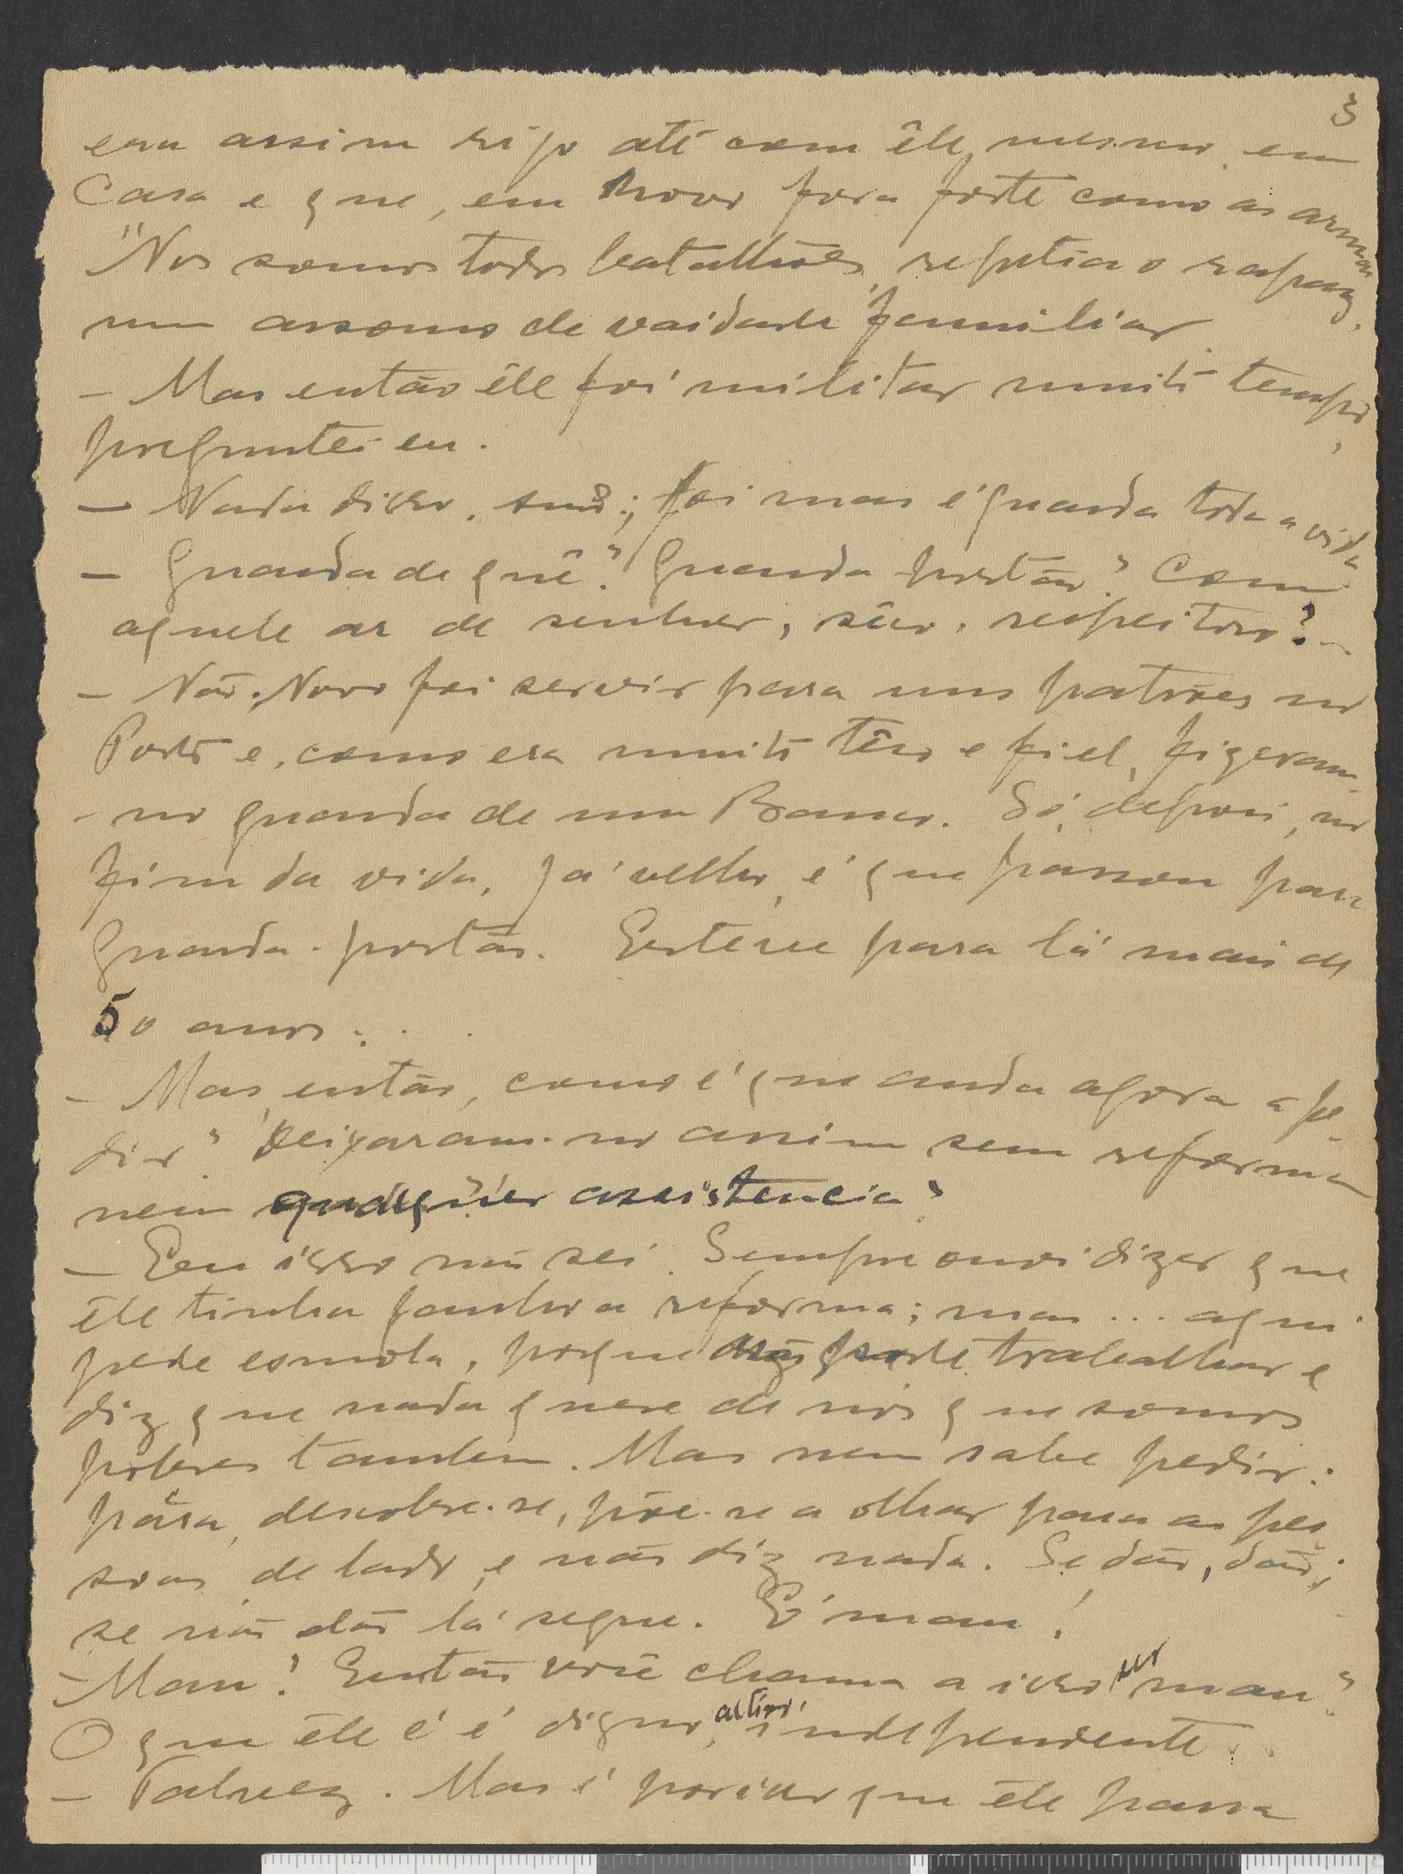 3
era assim rijo até com êle mesmo, em
Casa e que, em novo fora forte como as armas
"Nos somos todos batalhões, repetia o rapaz,
num assomo de vaidade familiar.
— Mas então êle foi militar muito tempo,
preguntei eu.
— Nada disso, snr.; foi mas é guarda toda a vida
— Guarda de quê? Guarda portão? Com
aquele ar de senhor, sêco, respeitoso?..
— Não. Novo foi servir para uns patrões no
Porto e, como era muito têso e fiel, fizeram-
-no guarda de um Banco. Só, depois, no
fim da vida, já velho, é que passou para
Guarda-portão. Esteve para lá mais de
50 anos...
— Mas, então, como é que anda agora a pe-
dir? Deixaram-no assim sem reforma
nem qualquer assistencia?
— Eu isso não sei. Sempre ouvi dizer que
êle tinha ganho a reforma; mas... aqui
pede esmola, porque não pode trabalhar e
diz que nada quere de nós que somos
pobres tambem. Mas nem sabe pedir:
pára, descobre-se, põe-se a olhar para as pes
soas de lado, e não diz nada. Se dão, dão;
se não dão lá segue. É mau!
— Mau? Então você chama a isso ser mau?
O que êle é é digno, altivo, independente...
— Talvez. Mas é por isso que êle passa